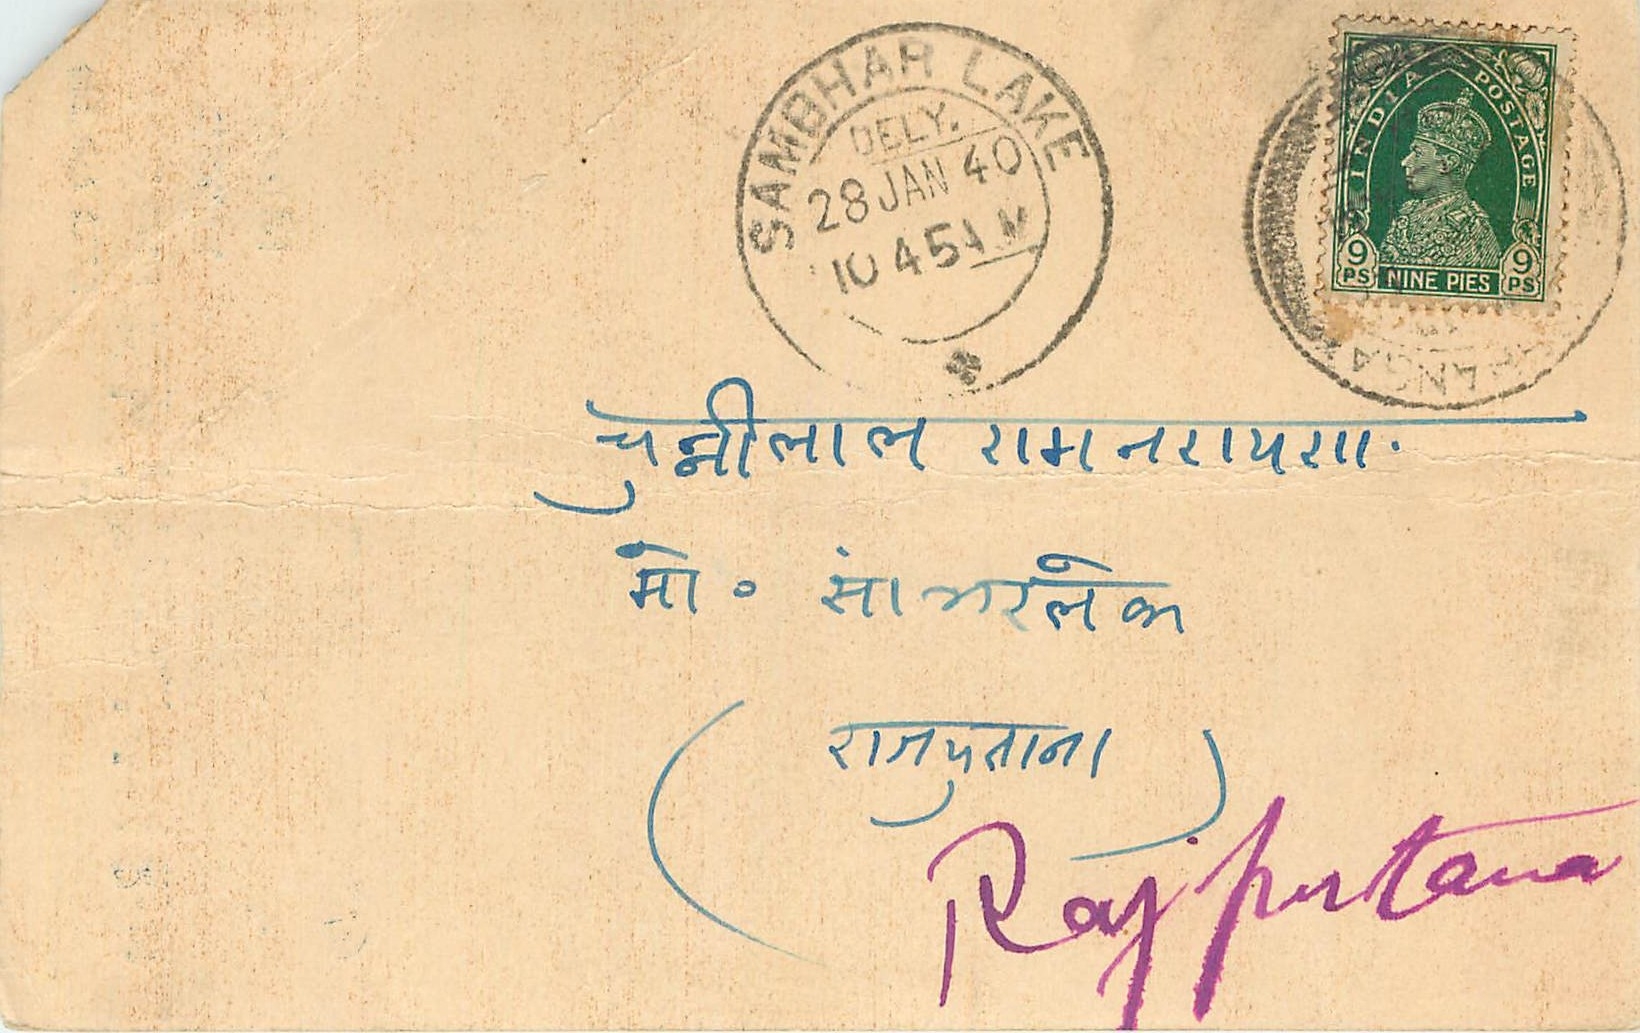 SAMBHAR LAKE
DELY.
28 JAN 40
10 45 AM
INDIA POSTAGE
9 PS NINE PIES 9 PS
चुन्नीलाल रामनरायण.
मो० सांभरलेक
(राजपुताना)
Rajputana